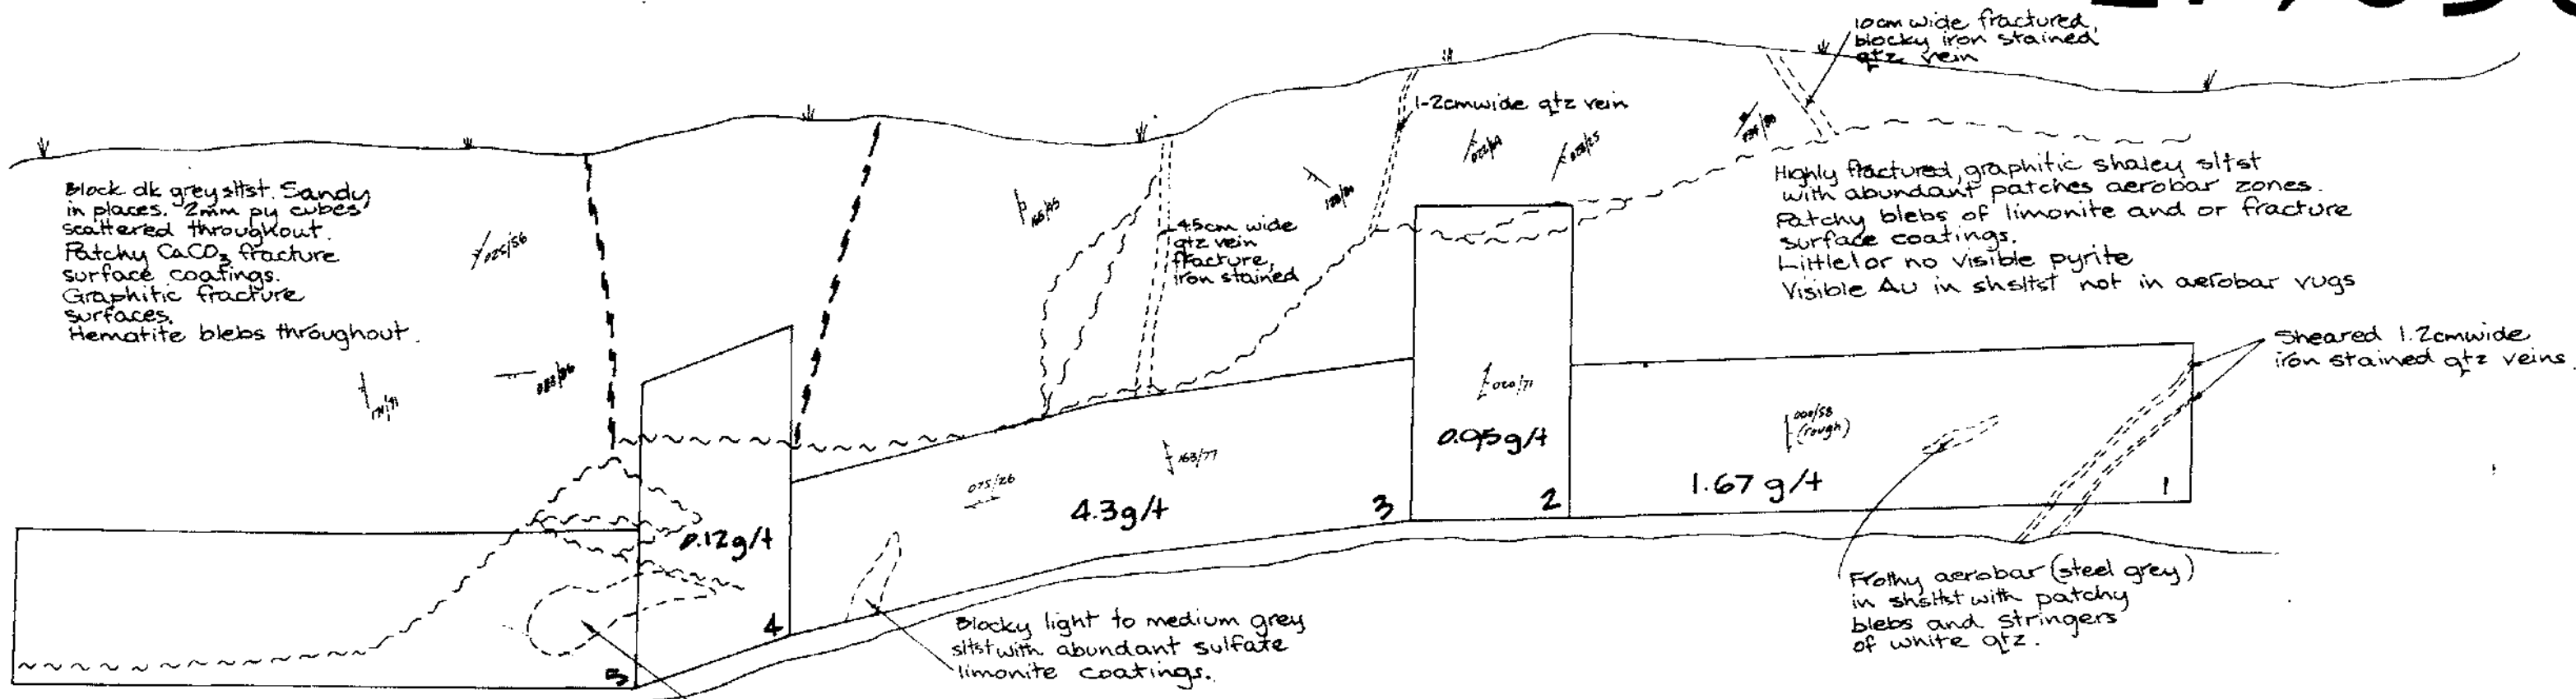 10cm wide fractured,
blocky iron stained
qtz vein
1-2cmwide qtz vein
Block dk grey sltst. Sandy
in places. 2mm py cubes
scattered throughout.
Patchy CaCO3 fracture
surface coatings.
Graphitic fracture
surfaces.
Hematite blebs throughout.
025/56
45cm wide
qtz vein
fracture,
iron stained
Highly fractured, graphitic shaley sltst
with abundant patches aerobar zones.
Patchy blebs of limonite and or fracture
surface coatings.
Little or no visible pyrite
Visible Au in shsltst not in aerobar vugs
Sheared 1.2cmwide
iron stained qtz veins.
020/71
0.95g/t
000/58
(rough)
163/77
075/26
4.3g/t
1.67 g/t
3
2
1
0.12g/t
4
5
Blocky light to medium grey
sltst with abundant sulfate
limonite coatings.
Frothy aerobar (steel grey)
in shsltst with patchy
blebs and stringers
of white qtz.